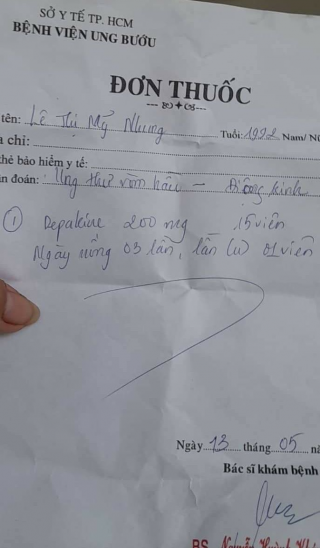 SỞ Y TẾ TP. HCM
BỆNH VIỆN UNG BƯỚU
ĐƠN THUỐC
tên: Lê Thị Mỹ Nhung Tuổi: 1992 Nam/
a chỉ:
thẻ bảo hiểm y tế:
ẩn đoán: Ung thư vòm hầu – Động kinh
① Depakine 200 mg 15 viên
Ngày uống 03 lần, lần (u) 01 viên
Ngày 13 tháng 05
Bác sĩ khám bệnh
BS. Nguyễn Huỳnh